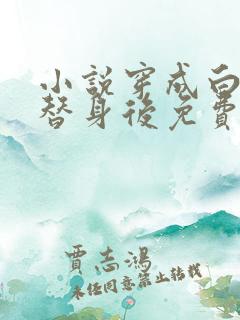 小說穿成白
替身後免費
賈志鴻
未经同意禁止转载